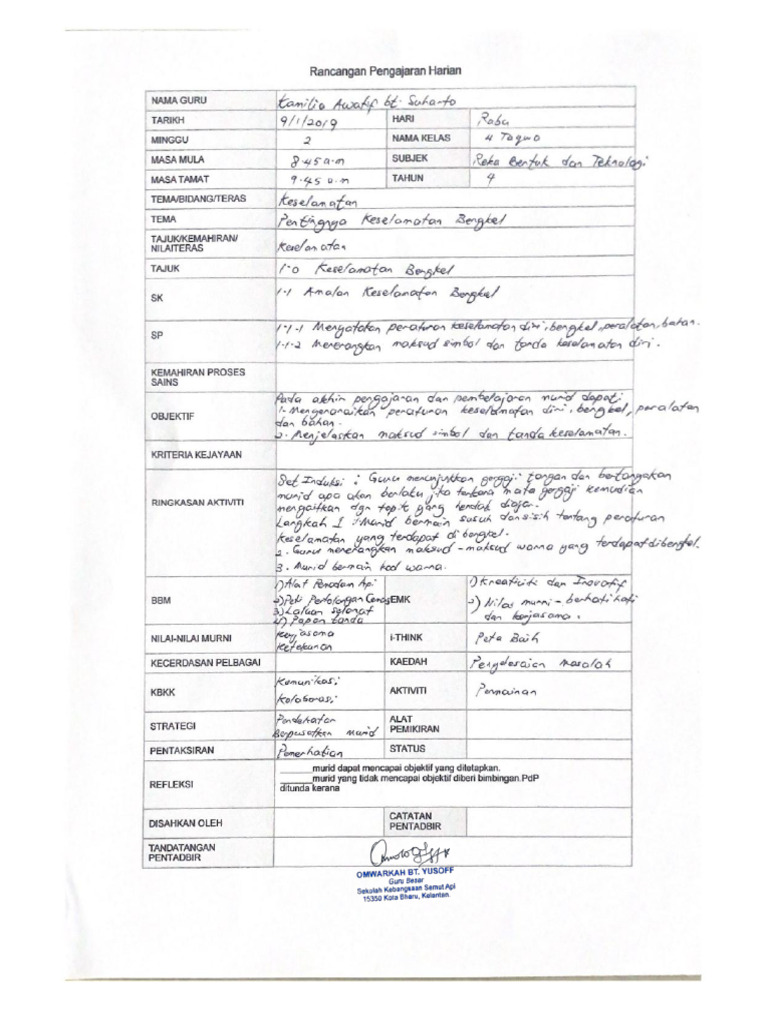 Rancangan Pengajaran Harian
NAMA GURU Kamilia Awatif bt. Suharto
TARIKH 9/1/2019 HARI Rabu
MINGGU 2 NAMA KELAS 4 Taqwa
MASA MULA 8.45 a.m SUBJEK Reka Bentuk dan Teknologi
MASA TAMAT 9.45 a.m TAHUN 4
TEMA/BIDANG/TERAS Keselamatan
TEMA Pentingnya Keselamatan Bengkel
TAJUK/KEMAHIRAN/
NILAITERAS Keselamatan
TAJUK 1.0 Keselamatan Bengkel
SK 1.1 Amalan Keselamatan Bengkel
SP 1.1.1 Menyatakan peraturan keselamatan diri, bengkel, peralatan, bahan.
1.1.2 Menerangkan maksud simbol dan tanda keselamatan diri.
KEMAHIRAN PROSES
SAINS
OBJEKTIF Pada akhir pengajaran dan pembelajaran murid dapat:
1. Mengenaraikan peraturan keselamatan diri, bengkel, peralatan
dan bahan.
2. Menjelaskan maksud simbol dan tanda keselamatan.
KRITERIA KEJAYAAN
RINGKASAN AKTIVITI Set Induksi : Guru menunjukkan gergaji tangan dan bertanyakan
murid apa akan berlaku jika terkena mata gergaji kemudian
mengaitkan dgn topik yang hendak diajar.
Langkah 1 : Murid bermain susun dan sisih tentang peraturan
keselamatan yang terdapat di bengkel.
2. Guru menerangkan maksud-maksud warna yang terdapat di bengkel.
3. Murid bermain kod warna.
BBM 1) Alat Pemadam Api EMK 1) Kreativiti dan Inovatif
2) Peti Pertolongan Cemas 2) Nilai murni - berhati hati
3) Laluan selamat dan kerjasama.
4) Papan tanda
NILAI-NILAI MURNI Kerjasama i-THINK Peta Buih
Ketekunan
KECERDASAN PELBAGAI KAEDAH Penyelesaian Masalah
KBKK Komunikasi AKTIVITI Permainan
Kolaborasi
STRATEGI Pendekatan ALAT
Berpusatkan Murid PEMIKIRAN
PENTAKSIRAN Pemerhatian STATUS
REFLEKSI ______murid dapat mencapai objektif yang ditetapkan.
______murid yang tidak mencapai objektif diberi bimbingan.PdP
ditunda kerana
DISAHKAN OLEH CATATAN
PENTADBIR
TANDATANGAN
PENTADBIR
OMWARKAH BT. YUSOFF
Guru Besar
Sekolah Kebangsaan Semut Api
15350 Kota Bharu, Kelantan.